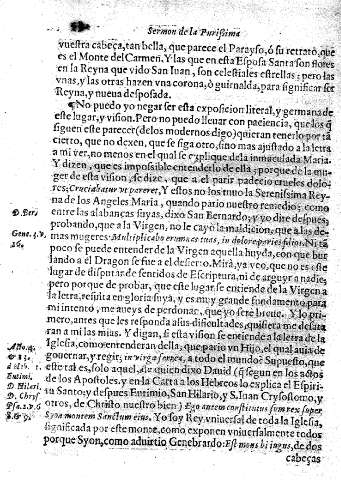 Sermon de la Purissima
vuestra cabeça, tan bella, que parece el Parayso, ó su retrató, que
es el Monte del Carmen. Y las que en esta Esposa Santa son flores
en la Reyna que vido San Iuan, son celestiales estrellas; pero las
vnas, y las otras hazen vna corona, ò guirnalda, para significar ser
Reyna, y nueva desposada.
No puedo yo negar ser esta exposicion literal, y germana de
este lugar, y vision. Pero no puedo llevar con paciencia, que los q̃
siguen este parecer (de los modernos digo) quieran tenerlo por tã
cierto, que no dexen, que se siga otro, sino mas ajustado a la letra
a mi ver, no menos en el qual se explique de la inmaculada Maria.
Y dizen, que es impossible entenderlo de ella; porque de la mu-
ger de esta vision se dize, que a el parir padecio crueles dolo-
res: Cruciabatur vt pareret, Y estos no los tuvo la Serenissima Rey-
na de los Angeles Maria, quando pario nuestro remedio; como
D. Ber.
entre las alabanças suyas, dixo San Bernardo; y yo dire despues,
probando, que a la Virgen, no le cayò la maldición, que a las de-
Gene. 3. V.
16.
mas mugeres: Multiplicabo erumnas tuas, in dolore paries filios. Ni tã
poco se puede entender de la Virgen aquella huyda, con que bur
lando a el Dragon se fue a el desierto. Mirà, ya veo, que no es este
lugar de disputar de sentidos de Escriptura, ni de arguyr a nadie;
pero porque de probar, que este lugar se entiende de la Virgen a
la letra, resulta en gloria suya, y es muy grande fundamento para
mi intento, me aveys de perdonar, que yo serè breve. Y lo pri-
mero, antes que les responda a sus dificultades, quisiera me desata
ran a mi las mias. Y digan, si esta vision se entiende a la letra de la
Iglesia, como entenderan della; que pario vn Hijo, el qual avia de
governar, y regir; in virga ferrea, a todo el mundo? Supuesto, que
este tal es, solo aquel, de quien dixo David (q̃ segun en los actos
de los Apostoles, y en la Carta a los Hebreos lo explica el Espiri-
tu Santo; y despues Eutimio, San Hilario, y S. Iuan Crysostomo, y
Eutimi,
D. Hilari,
D. Chrys
Psa. 2. v. 6
otros, de Christo nuestro bien) Ego autem constitutus sum rex super
Syon montem Sanctum eius. Yo soy Rey vniversal de toda la Iglesia,
significada por este monte, como exponen vniversalmente todos
porque Syon, como advirtio Genebrardo: Est mons bi iugus, de dos
cabeças